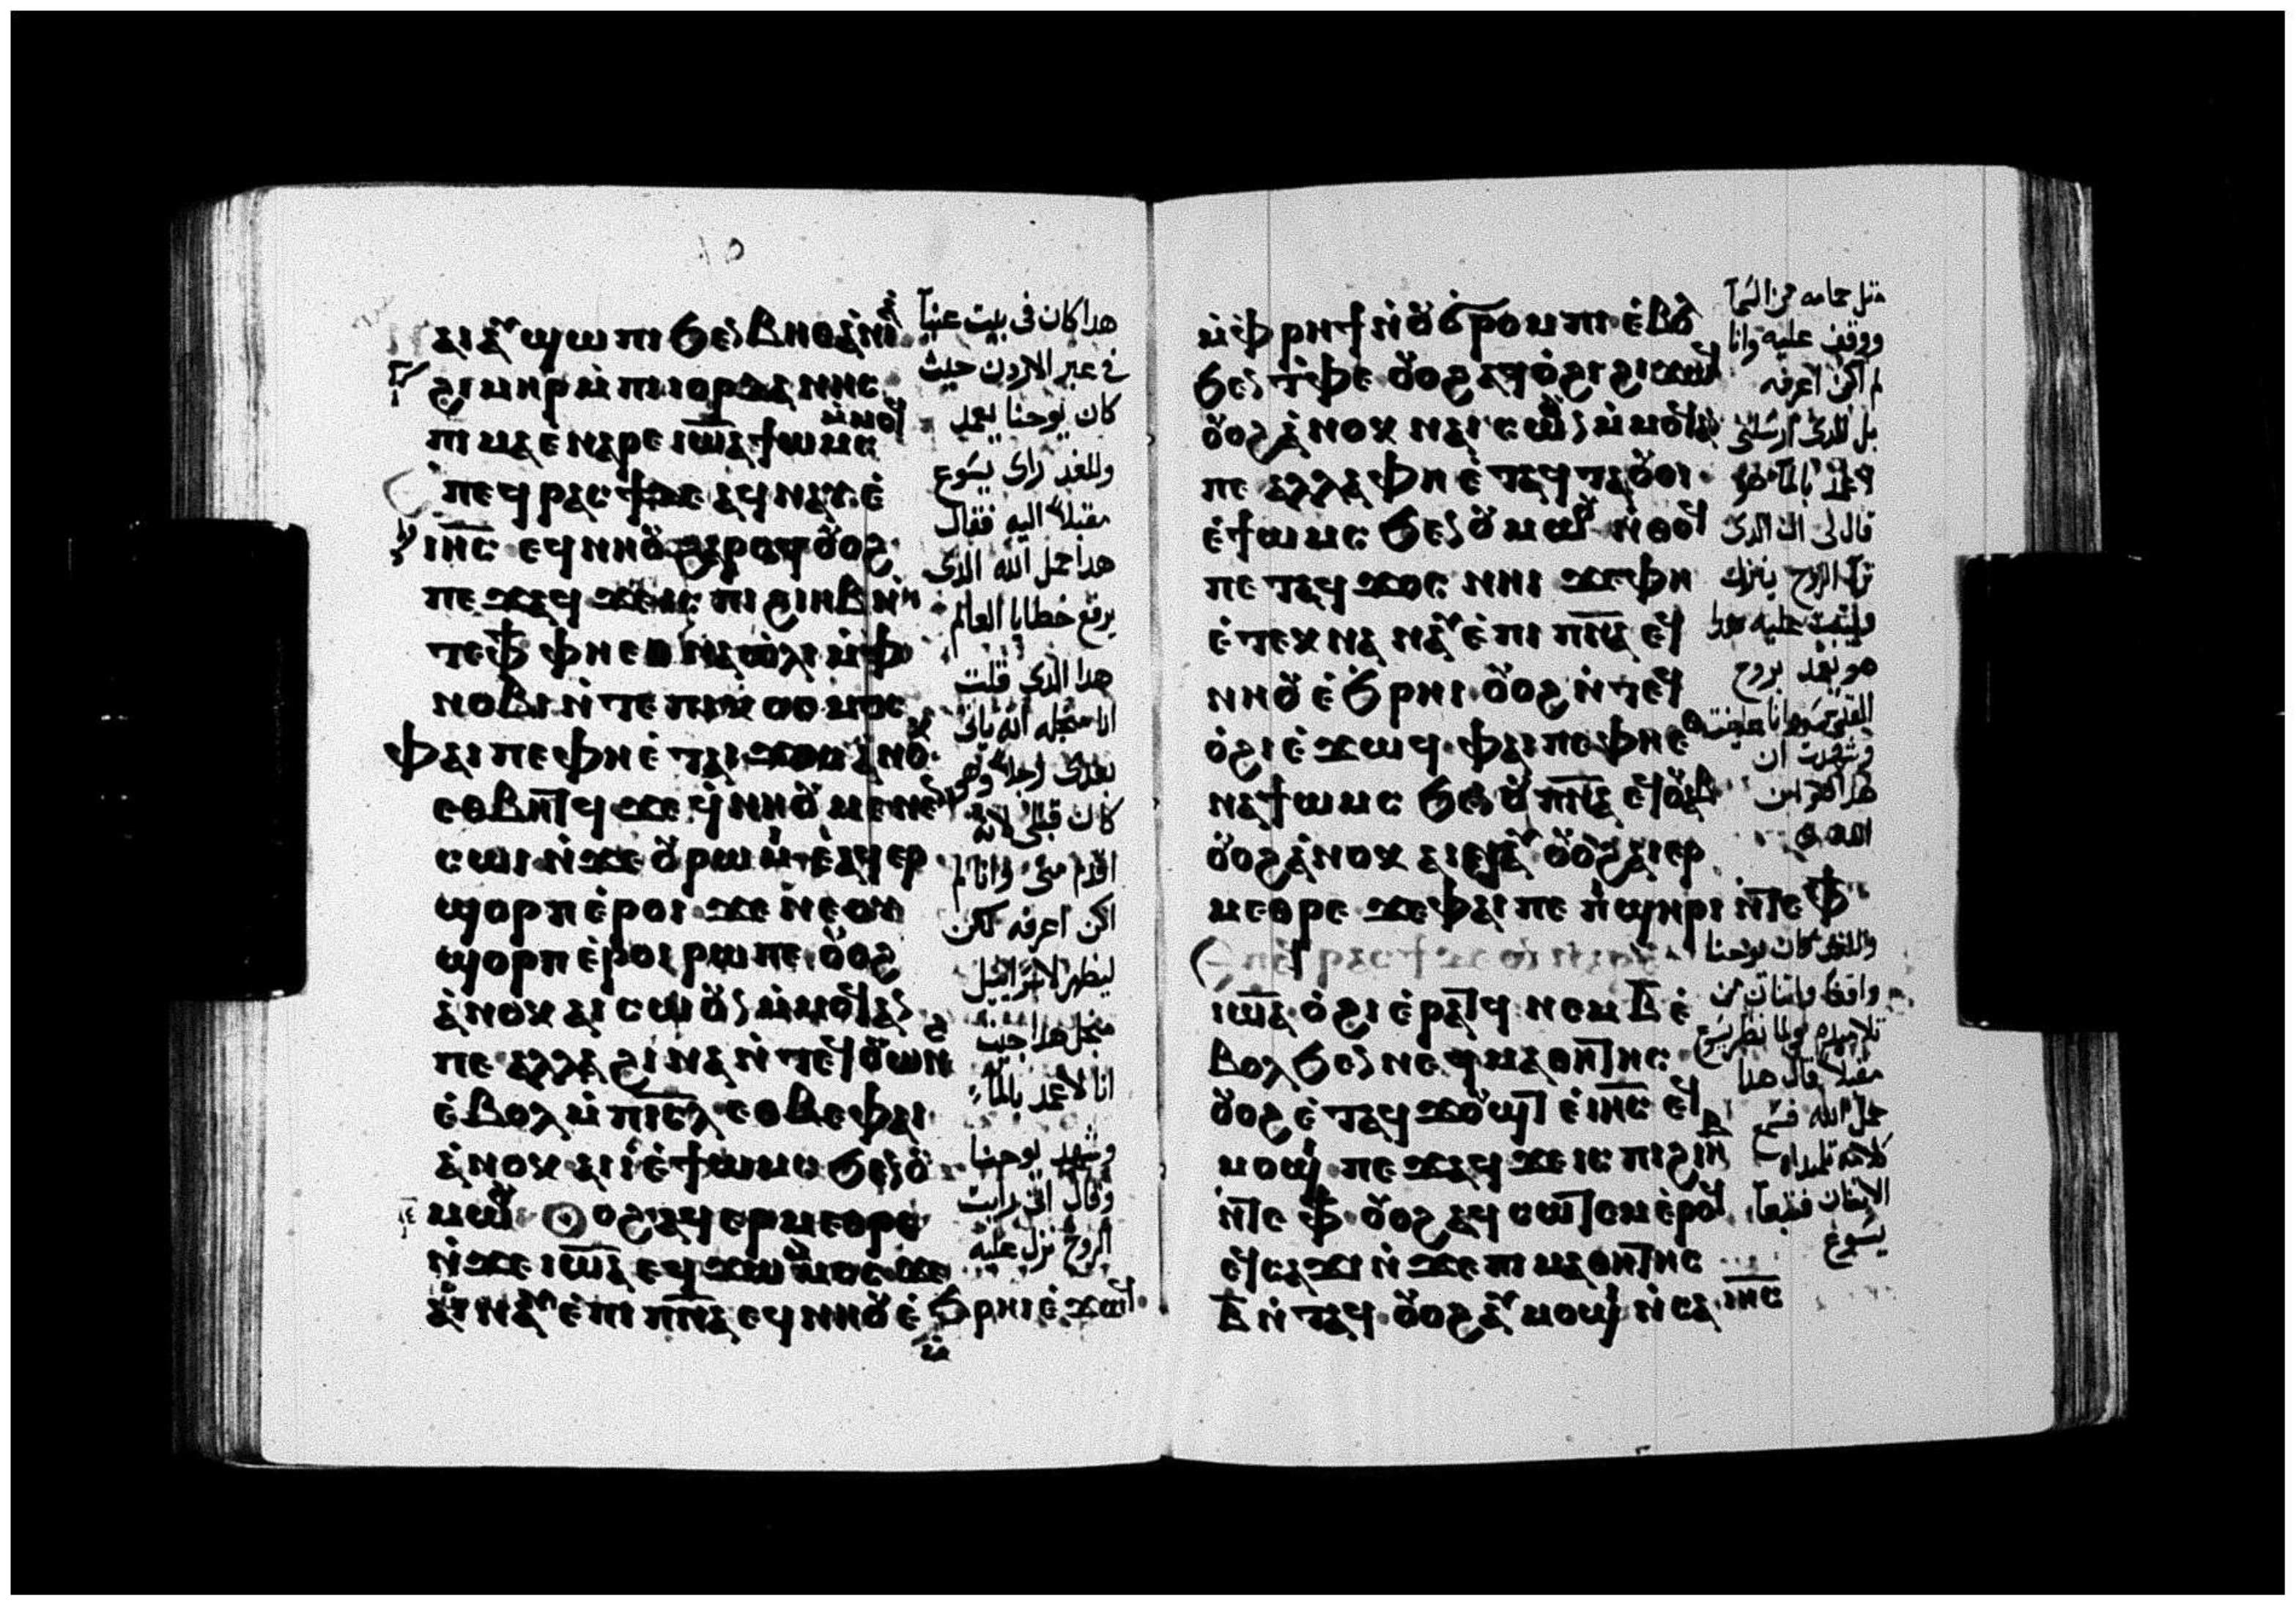 ⲛⲁⲓ ⲁⲩϣⲱⲡⲓ ϧⲉⲛ ⲃⲏⲑⲁⲛⲓⲁ
ϩⲓⲙⲏⲣ ⲙ̇ⲡⲓⲓⲟⲣⲇⲁⲛⲏⲥ
ⲡⲓⲙⲁ ⲉ̇ⲛⲁⲣⲉ ⲓⲱ̅ⲁ ϯⲱⲙⲥ ⲙ̇ⲙⲟϥ
ⲡⲉϥⲣⲁⲥϯ ⲇⲉ ⲁϥⲛⲁⲩ ⲉ̇
ⲓⲏ̅ⲥ ⲉϥⲛⲏⲟⲩ ϩⲁⲣⲟϥ ⲟⲩⲟϩ
ⲡⲉϫⲁϥ ϫⲉ ⲓⲥ ⲡⲓϩⲓⲏⲃ ⲛ̇
ⲧⲉ ⲫϯ ⲫⲏ ⲉⲑⲛⲁⲱ̇ⲗⲓ ⲙ̇ⲫ
ⲛⲟⲃⲓ ⲛ̇ⲧⲉ ⲡⲓⲕⲟⲥⲙⲟⲥ
ⲫⲁⲓ ⲡⲉ ⲫⲏ ⲉ̇ⲧⲁⲓϫⲟⲥ ⲁ̇ⲛⲟⲕ
ⲉⲑⲃⲏⲧϥ ϫⲉ ϥ̇ⲛⲏⲟⲩ ⲙⲉⲛⲉⲛ
ⲥⲱⲓ ⲛ̇ϫⲉ ⲟⲩⲣⲱⲙⲓ ⲉ̇ⲁϥⲉⲣ
ϣⲟⲣⲡ ⲉ̇ⲣⲟⲓ ϫⲉ ⲛⲉ ⲟⲩ
ϣⲟⲣⲡ ⲉ̇ⲣⲟⲓ ⲣⲱ ⲡⲉ ⲟⲩⲟϩ
ⲁ̇ⲛⲟⲕ ⲛⲁⲓⲥⲱⲟⲩⲛ ⲙ̇ⲙⲟϥ ⲁⲛ
ⲡⲉ ⲁⲗⲗⲁ ϩⲓⲛⲁ ⲛ̇ⲧⲉϥⲟⲩⲱⲛϩ
ⲉ̇ⲃⲟⲗ ⲙ̇ⲡⲓⲥ̅ⲗ ⲉⲑⲃⲉ ⲫⲁⲓ
ⲁ̇ⲛⲟⲕ ⲁⲓⲓ̇ ⲉ̇ϯⲱⲙⲥ ϧⲉⲛ ⲟⲩ
ⲙⲱⲟⲩ ⲟⲩⲟϩ ⲁϥⲉⲣⲙⲉⲑⲣⲉ
ⲛ̇ϫⲉ ⲓⲱ̅ⲁ ⲉϥϫⲱ ⲙ̇ⲙⲟⲥ ϫⲉ
ⲁⲓⲛⲁⲩ ⲉ̇ⲡⲓⲡⲛ̅ⲁ ⲉϥⲛⲏⲟⲩ ⲉ̇ϧⲣⲏⲓ ⲉ̇ϫⲱϥ
هدا كان فى بيت عنيا
فى عبر الاردن حيث
كان يوحنا يعمد
وللغد راى يسوع
مقبلا اليه فقال
هدا حمل الله الدى
يرفع خطايا العالم
هدا الدى قلت
انا من اجله انه ياتى
بعدى رجلا وهو
كان قبلى لانه
اقدم منى وانا لم
اكن اعرفه لكن
ليظهر لاسرائيل
من اجل هدا جيت
انا لاعمد بالماء
وشهد يوحنا
وقال انى رايت
الروح نزل عليه
ⲙ̇ⲫⲣⲏϯ ⲛ̇ⲟⲩϭⲣⲟⲙⲡⲓ ⲉ̇ⲃⲟⲗ
ϧⲉⲛ ⲧ̇ⲫⲉ ⲟⲩⲟϩ ⲁϥⲟ̇ϩⲓ ϩⲓϫⲱϥ
ⲟⲩⲟϩ ⲁ̇ⲛⲟⲕ ⲛⲁⲓⲥⲱⲟⲩⲛ ⲙ̇ⲙⲟϥ ⲁⲛ
ⲡⲉ ⲁⲗⲗⲁ ⲫⲏ ⲉ̇ⲧⲁϥⲧⲁⲟⲩⲟⲓ
ⲉ̇ϯⲱⲙⲥ ϧⲉⲛ ⲟⲩⲙⲱⲟⲩ ⲛ̇ⲑⲟϥ
ⲡⲉ ⲧⲁϥϫⲟⲥ ⲛⲏⲓ ϫⲉ ⲫⲏ
ⲉ̇ⲧⲉⲕⲛⲁⲛⲁⲩ ⲉ̇ⲡⲓⲡⲛ̅ⲁ ⲉϥ
ⲛⲏⲟⲩ ⲉ̇ϧⲣⲏⲓ ⲟⲩⲟϩ ⲛ̇ⲧⲉϥ
ⲟ̇ϩⲓ ⲉ̇ϫⲱϥ ⲫⲁⲓ ⲡⲉ ⲫⲏ ⲉ
ⲛⲁϯⲱⲙⲥ ϧⲉⲛ ⲟⲩⲡⲛ̅ⲁ ⲉϥⲟⲩⲁⲃ
ⲟⲩⲟϩ ⲁ̇ⲛⲟⲕ ⲁⲓⲛⲁⲩ ⲟⲩⲟϩ ⲁⲓⲉⲣ
ⲙⲉⲑⲣⲉ ϫⲉ ⲫⲁⲓ ⲡⲉ ⲡ̇ϣⲏⲣⲓ ⲛ̇ⲧⲉ ⲫϯ
ⲓⲱ̅ⲁ ⲟ̇ϩⲓ ⲉ̇ⲣⲁⲧϥ ⲛⲉⲙ ⲃ̅ ⲉ̇
ⲃⲟⲗ ϧⲉⲛ ⲛⲉϥⲙⲁⲑⲏⲧⲏⲥ
ⲟⲩⲟϩ ⲉ̇ⲧⲁϥϫⲟⲩϣⲧ ⲉ̇ⲓⲏ̅ⲥ ⲉϥ
ⲙⲟϣⲓ ⲡⲉϫⲁϥ ϫⲉ ⲓⲥ ⲡⲓϩⲓⲏⲃ
ⲛ̇ⲧⲉ ⲫϯ ⲟⲩⲟϩ ⲁϥⲥⲱⲧⲉⲙ ⲉ̇ⲣⲟϥ
ⲉϥⲥⲁϫⲓ ⲛ̇ϫⲉ ⲡⲓⲙⲁⲑⲏⲧⲏⲥ
ⲃ̅ ⲛ̇ⲧⲁϥ ⲟⲩⲟϩ ⲁⲩⲙⲟϣⲓ ⲛ̇ⲥⲁ ⲓⲏ̅ⲥ
مثل حمامه من السما
ووقف عليه وانا
لم اكن اعرفه
بل الدى ارسلنى
لاعمد بالما هو
قال لى ان الدى
ترا الروح ينزل
ويثبت عليه هدا
هو يعمد بروح
القدس وانا عاينت
وشهدت ان
هدا هو ابن
الله
وللغد كان يوحنا
واقفا واثنان من
تلاميده فلما نظر يسوع
مقبلا قال هدا
حمل الله فسمع
كلامه تلميداه
الاثنان فتبعا
يسوع